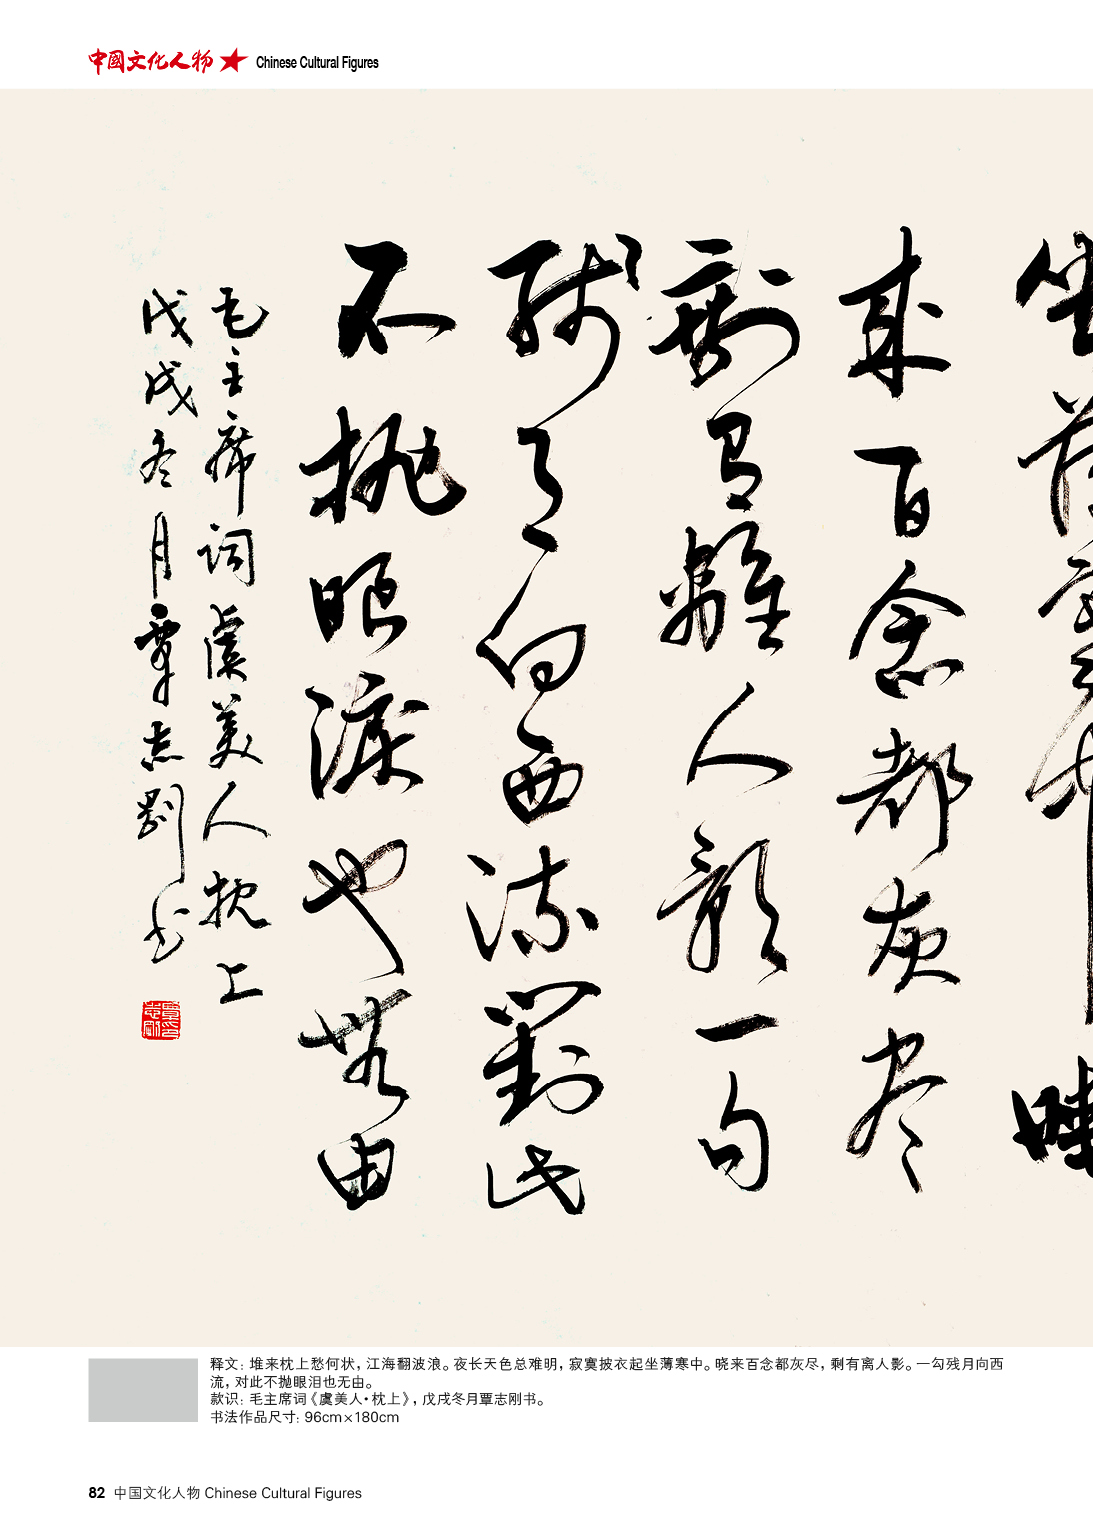 中國文化人物 ★ Chinese Cultural Figures
坐薄寒中曉
來百念都灰尽
剩有離人影一句
残月向西流對此
不抛眼淚也無由
毛主席词虞美人枕上
戊戌冬月覃志剛书
释文：堆来枕上愁何状，江海翻波浪。夜长天色总难明，寂寞披衣起坐薄寒中。晓来百念都灰尽，剩有离人影。一勾残月向西
流，对此不抛眼泪也无由。
款识：毛主席词《虞美人·枕上》，戊戌冬月覃志刚书。
书法作品尺寸：96cm×180cm
82 中国文化人物 Chinese Cultural Figures